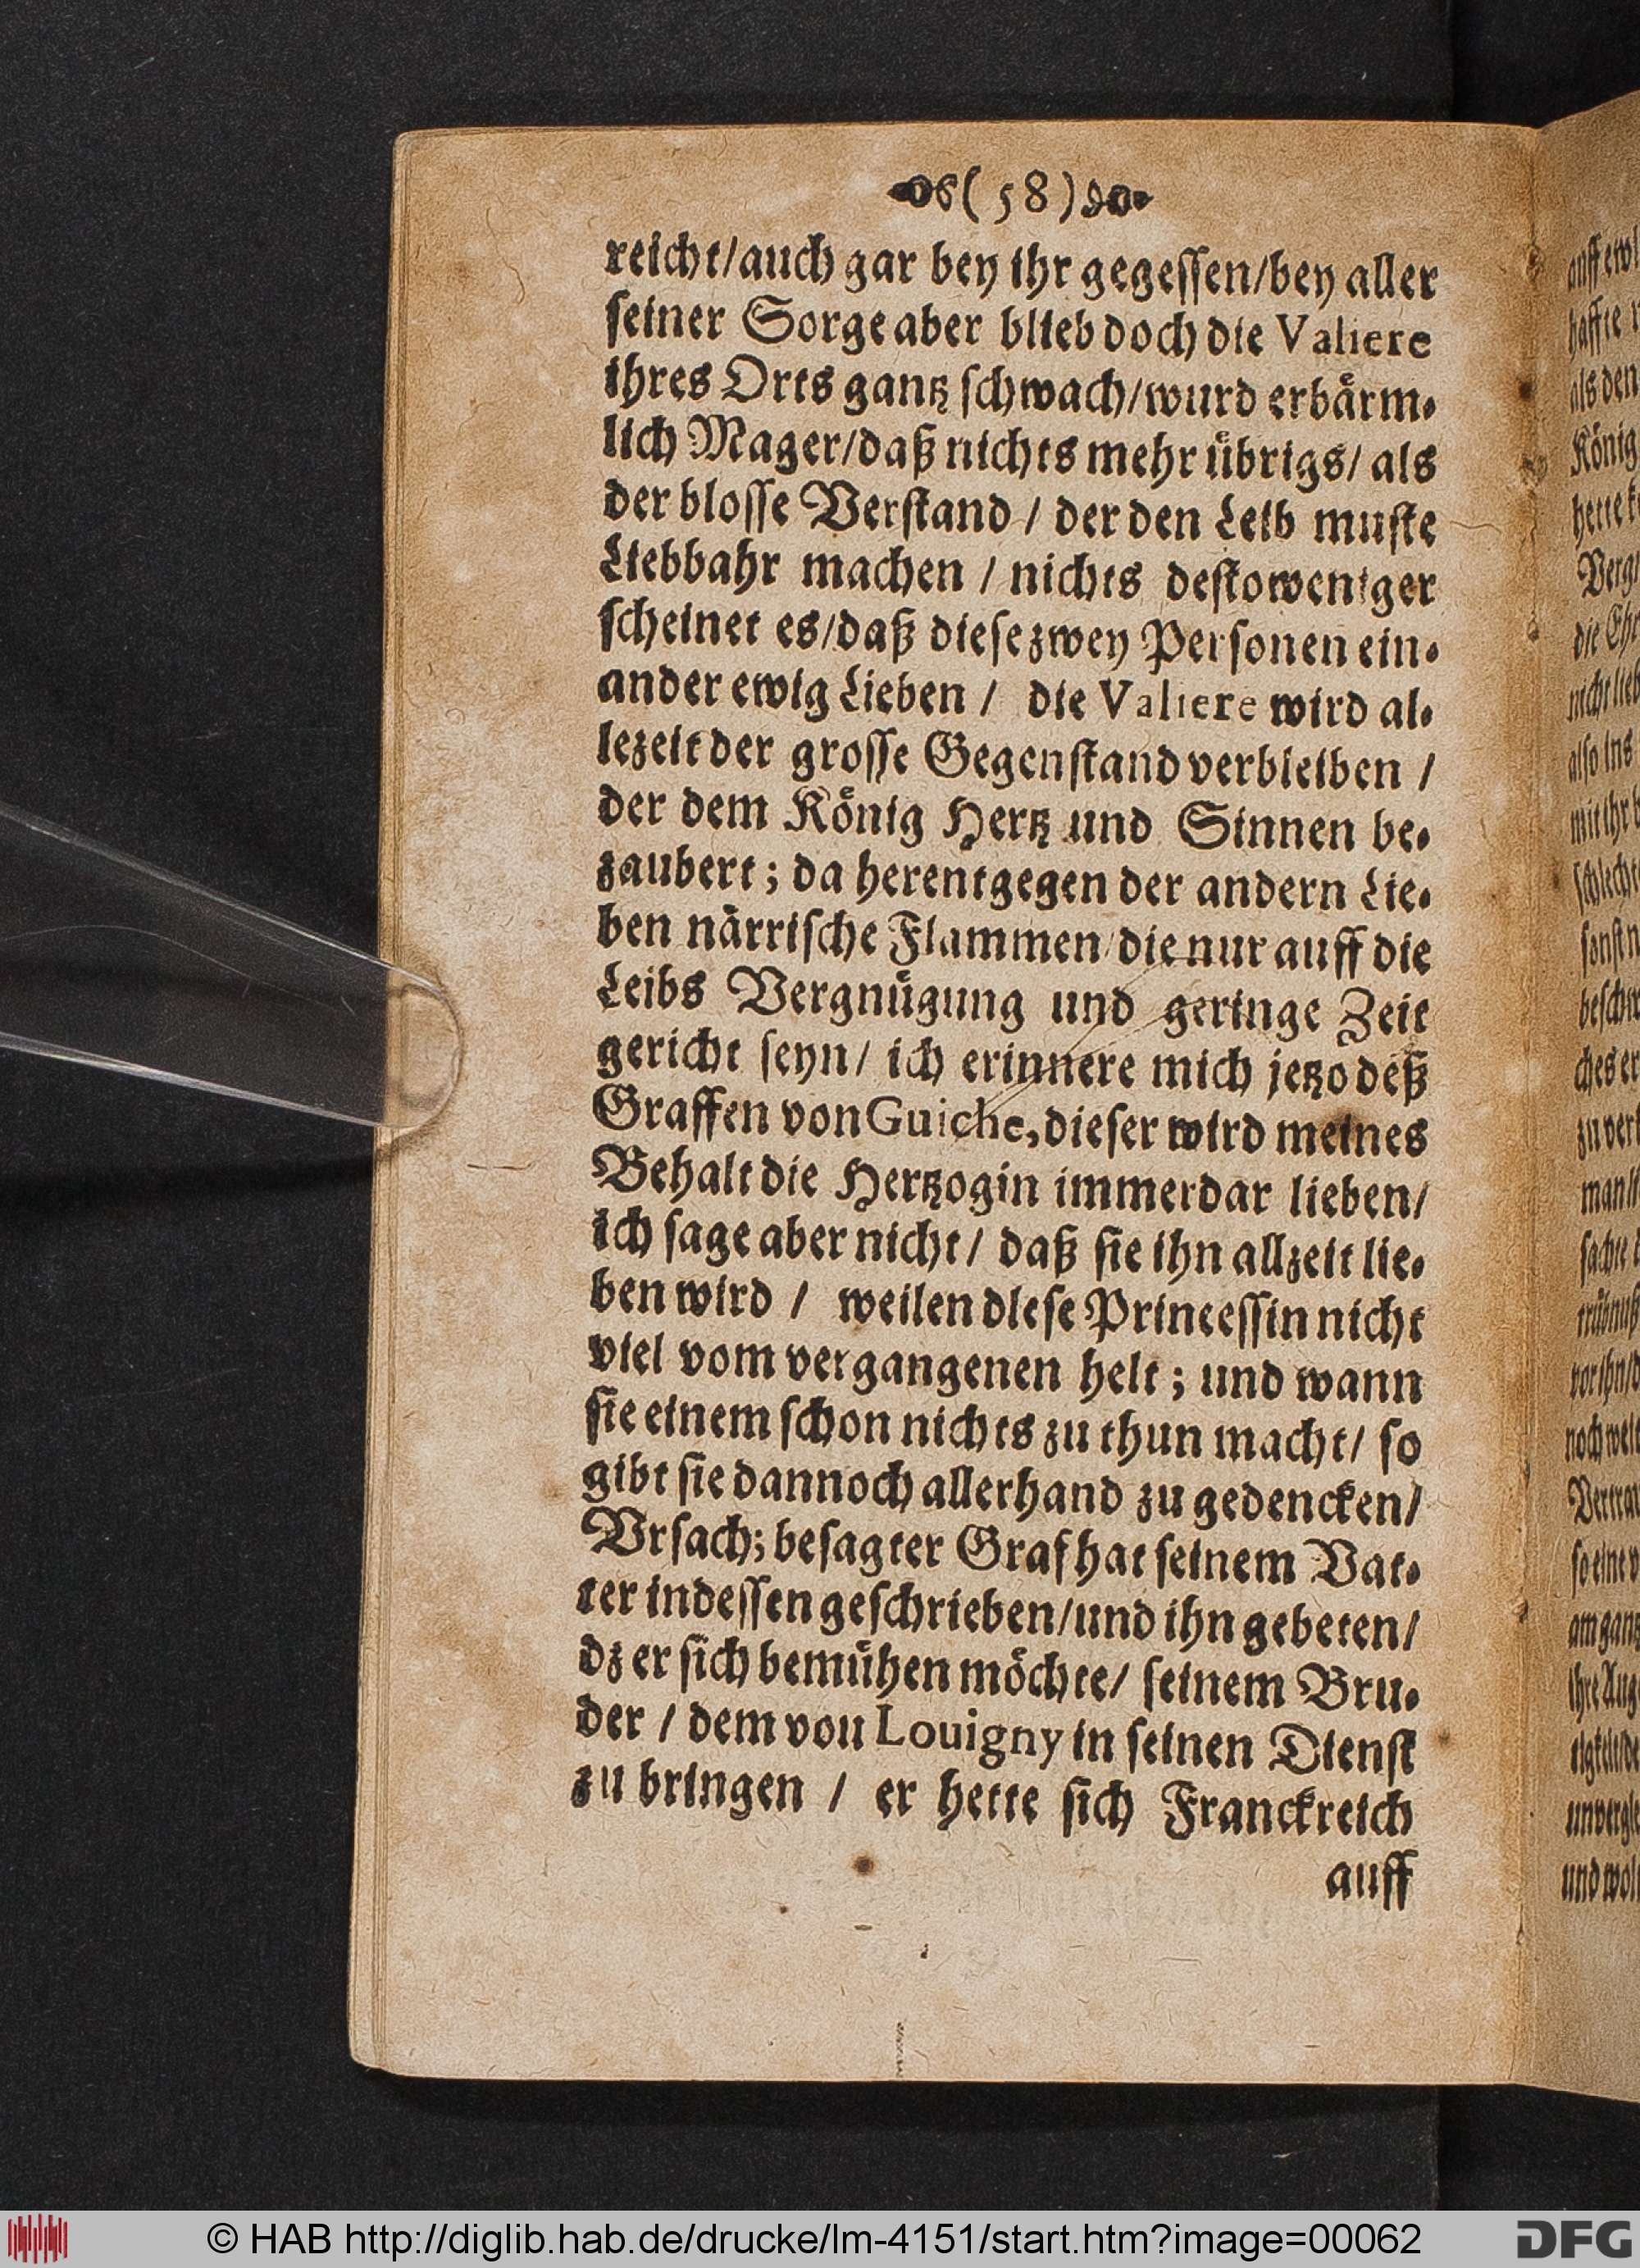 (58)
reicht/auch gar bey ihr gegessen/bey aller
seiner Sorge aber blieb doch die Valiere
ihres Orts gantz schwach/wurd erbärm-
lich Mager/daß nichts mehr übrigs/ als
der blosse Verstand / der den Leib muste
Liebbahr machen / nichts destoweniger
scheinet es/daß diese zwey Personen ein-
ander ewig Lieben / die Valiere wird al-
lezeit der grosse Gegenstand verbleiben /
der dem König Hertz und Sinnen be-
zaubert; da herentgegen der andern Lie-
ben närrische Flammen/die nur auff die
Leibs Vergnügung und geringe Zeit
gericht seyn/ ich erinnere mich jetzo deß
Graffen von Guiche, dieser wird meines
Behalt die Hertzogin immerdar lieben/
ich sage aber nicht/ daß sie ihn allzeit lie-
ben wird / weilen diese Princessin nicht
viel vom vergangenen helt; und wann
sie einem schon nichts zu thun macht/ so
gibt sie dannoch allerhand zu gedencken/
Vrsach; besagter Graf hat seinem Vat-
ter indessen geschrieben/und ihn gebeten/
dz er sich bemühen möchte/ seinem Bru-
der / dem vou Louigny in seinen Dienst
zu bringen / er hette sich Franckreich
auff
© HAB http://diglib.hab.de/drucke/lm-4151/start.htm?image=00062
DFG